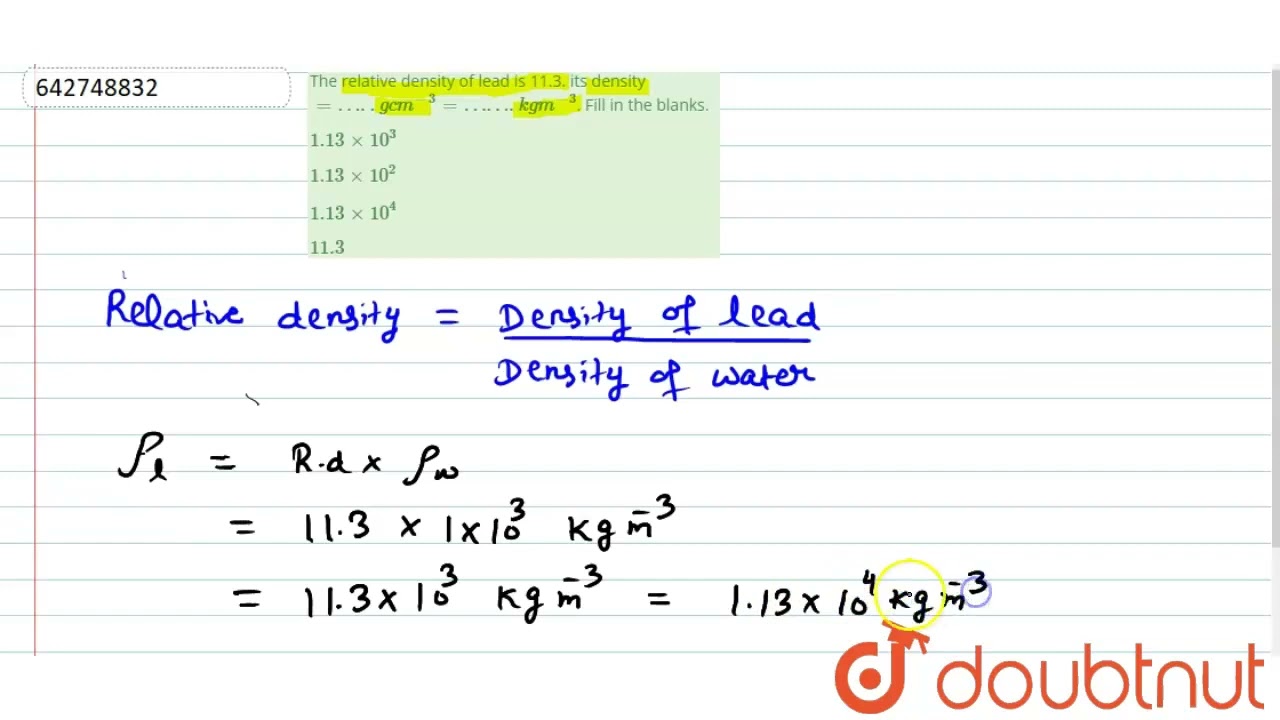 642748832
The relative density of lead is 11.3. its density
= ..... gcm⁻³ = ....... kgm⁻³. Fill in the blanks.
1.13 × 10³
1.13 × 10²
1.13 × 10⁴
11.3
Relative density = Density of lead
Density of water
ρₗ = R.d × ρw
= 11.3 × 1 × 10³ kg m⁻³
= 11.3 × 10³ kg m⁻³ = 1.13 × 10⁴ kg m⁻³
doubtnut